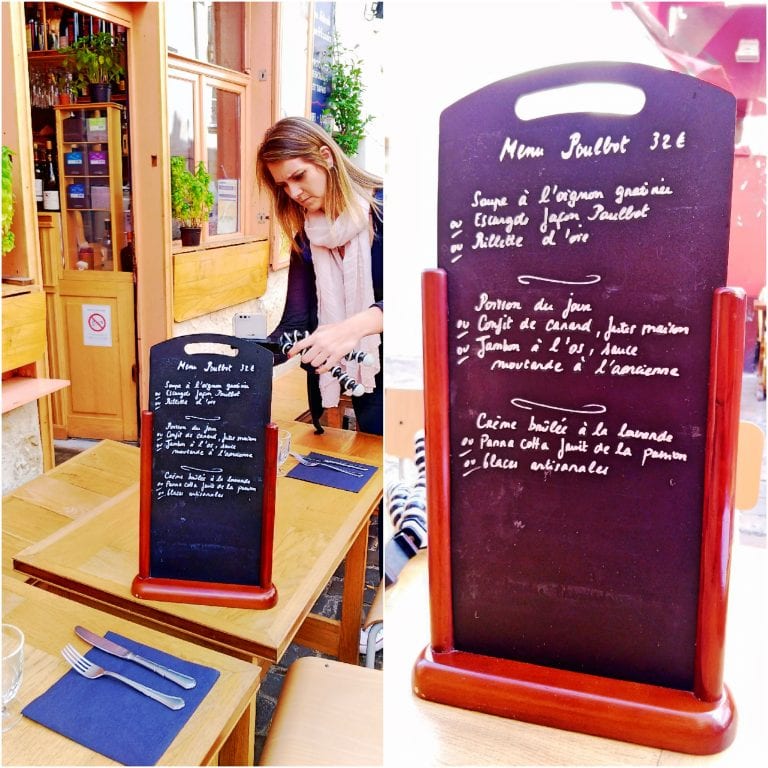 Menu Poulbot 32€
Soupe à l'oignon gratinée
ou Escargots façon Poulbot
ou Rillette d'oie
Poisson du jour
ou Confit de canard, frites maison
ou Jambon à l'os, sauce
moutarde à l'ancienne
Crème brûlée à la lavande
ou Panna cotta fruit de la passion
ou Glaces artisanales
Menu Poulbot 32€
Soupe à l'oignon gratinée
ou Escargots façon Poulbot
ou Rillette d'oie
Poisson du jour
ou Confit de canard, frites maison
ou Jambon à l'os, sauce
moutarde à l'ancienne
Crème brûlée à la lavande
ou Panna cotta fruit de la passion
ou Glaces artisanales